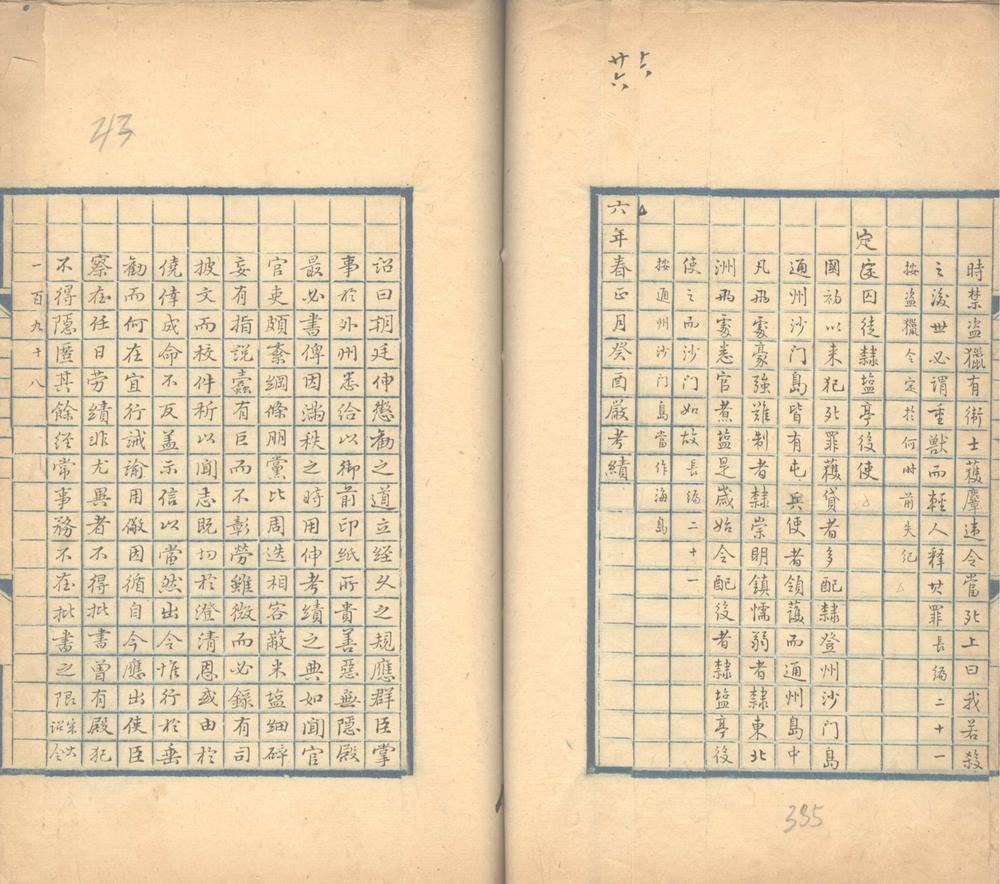 卄六
六
時禁盜獵有衛士獲麞違令當死上曰我若殺
之後世必謂重獸而輕人釋其罪長編二十一
按盜獵令定於何时前失纪
定
定囚徒隸塩亭役使
國初以来犯死罪獲貸者多配隸登州沙门島
通州沙门島皆有屯兵使者領護而通州島中
凡兩處豪強難制者隸崇明鎮懦弱者隸東北
洲兩處悉官煮塩是歲始令配役者隸塩亭役
使之而沙门如故長編二十一
按通州沙门島當作海島
六年春正月癸酉嚴考績
詔曰朝廷伸懲勸之道立經久之規應群臣掌
事於外州悉给以御前印纸所貴善惡無隱殿
最必書俾因滿秩之時用伸考績之典如聞官
官吏頗紊綱條朋黨比周迭相容蔽米塩细碎
妄有指説蠹有巨而不彰勞雖微而必錄有司
披文而校件析以聞志既切於澄清恩或由於
僥倖成命不反盖示信以當然出令惟行於垂
勸而何在宜行誡諭用儆因循自今應出使臣
察在任日勞績非尤異者不得批書曾有殿犯
不得隱匿其餘経常事務不在批書之限宋大詔令
一百九十八
43
335